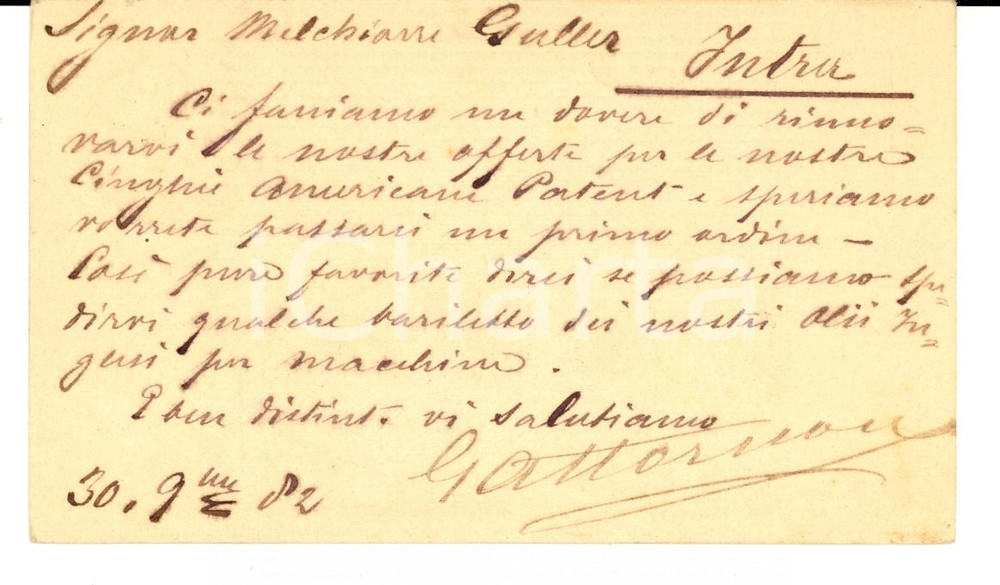 Signor Melchiorre Guller
Intra
Ci facciamo un dovere di rinno=
varvi le nostre offerte per le nostre
Cinghie Americane Patent e speriamo
vorrete passarci un primo ordine —
Così pure favorite dirci se possiamo spe=
dirvi qualche bariletto dei nostri Olii In=
glesi per macchine.
E ben distint. vi salutiamo
30. 9mbre 82
iCharta